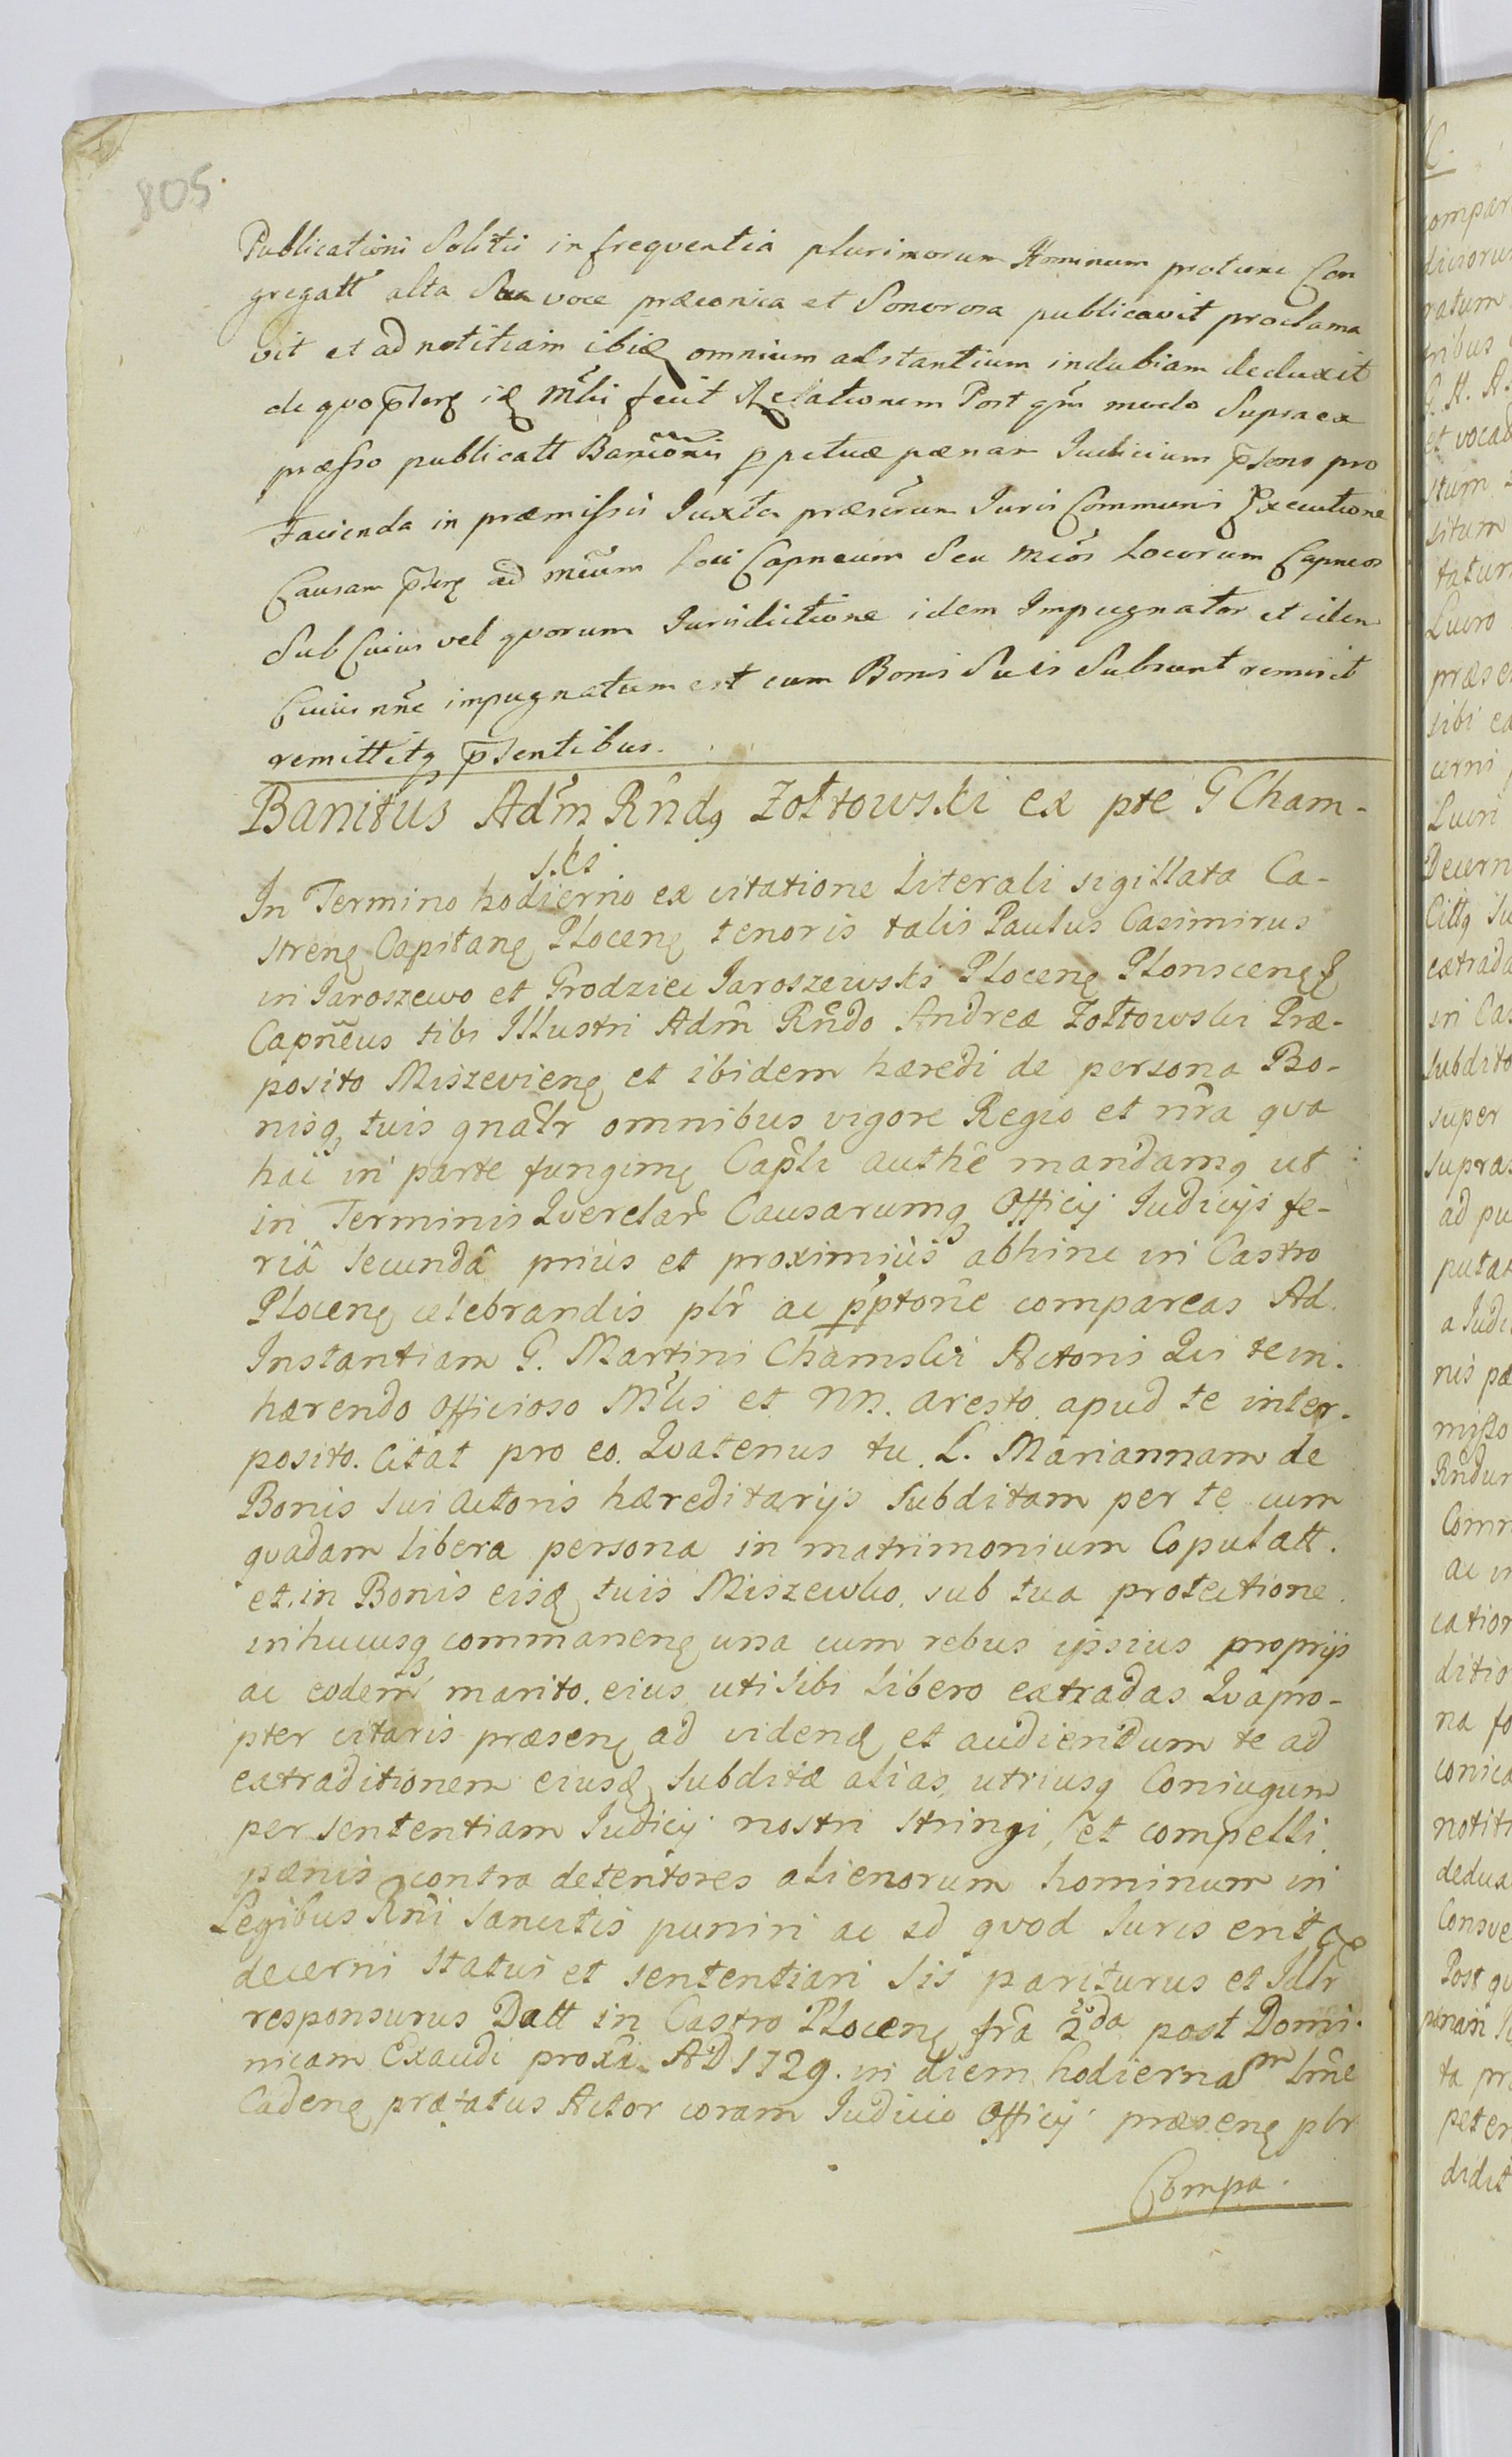 805.
Publicationi Solitis in frequentia plurimorum Hominum protunc Con
gregatt alta Sua voce præconica et Sonorosa publicavit proclama
vit et ad notitiam ibiđ omnium adstantium indubiam deduxit
de quo p̄ntę iđ Mĺis fecit Relationem Post qm̃ modo Supra ex
præsso publicatt Bancõnis p̱petuæ pænam Iudicium p̄sens pro
Facienda in præmissis Iuxta præscrũm Iuris Communis Executione
Causam p̄ntę ad mc̃um Loci Capneum Seu mc̃os Locorum Capneos
Sub Cuius vel quorum Iurisdictione idem Impugnator et iden
Cuius nñe impugnatum est cum Bonis Suis Subsunt remisit
remittitq p̄sentibus.
Banitus Adm̃ Rñdg Zołtowski ex pte G Cham-
ski
In Termino hodierno ex citatione literali sigillata Ca-
strenę Capitanę Plocenę tenoris talis Paulus Casimirus
in Jaroszewo et Grodziec Jaroszewski Plocenę Plonscenęę
Capñeus tibi Illustri Adm̃ Rñdo Andreæ Zołtowski Præ-
posito Miszevienę et ibidem hæredi de persona Bo-
nisq tuis gnãlr omnibus vigore Regio et nr̃a qva
hac in parte fungimę Capĺi authẽ mandamq ut
in Terminis Querelar̃ Causarumq Officij Iudicijs fe-
riâ secundâ prius et proximiùs abhinc in Castro
Plocenę celebrandis pĺr ac p̱p̃tõrie compareas Ad
Instantiam G. Martini Chamski Actoris Qui te in-
hærendo officioso Mĺis et NN. aresto apud te inter-
posito. Citat pro eo. Qvatenus tu L. Mariannam de
Bonis sui actoris hæreditarijs subditam per te cum
qvadam libera persona in matrimonium Copulatt.
et in Bonis eisđ tuis Miszewko sub tua protectione
inhucusq commanenę una cum rebus ipsius proprijs
ac eodemq marito eius uti sibi libero extradas Qvapro-
pter citaris præsenę ad videnđ et audiendum te ad
extraditionem eiusđ subditæ alias utriusq Coniugum
per sententiam Iudicij nostri stringi, et compelli
pænis contra detentores alienorum hominum in
Legibus Rñi sancitis puniri ac id qvod Iuris erit
decerni statui et sententiari sis pariturus et Idlr
responsurus Datt in Castro Plocenę fr̃a 2da post Domi-
nicam Exaudi proxã AD 1729. in diem hodiernam lm̃e
Cadenę præfatus Actor coram Iudicio Officij præsenę pĺr
Compa.